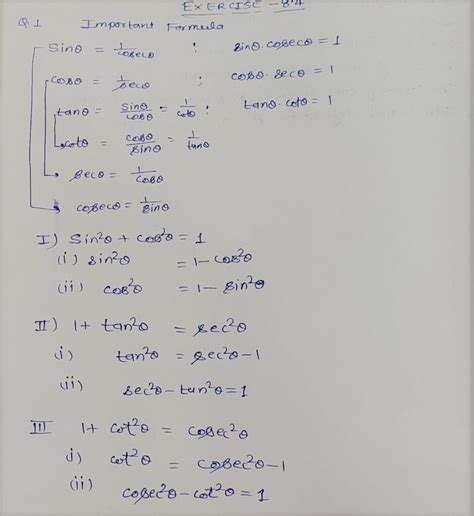 EXERCISE - 8.4
Q.1 Important Formula
Sinθ = 1/cosecθ ; sinθ.cosecθ = 1
cosθ = 1/secθ ; cosθ.secθ = 1
tanθ = sinθ/cosθ = 1/cotθ ; tanθ.cotθ = 1
cotθ = cosθ/sinθ = 1/tanθ
secθ = 1/cosθ
cosecθ = 1/sinθ
I) Sin²θ + cos²θ = 1
(i) sin²θ = 1 - cos²θ
(ii) cos²θ = 1 - sin²θ
II) 1 + tan²θ = sec²θ
(i) tan²θ = sec²θ - 1
(ii) sec²θ - tan²θ = 1
III 1 + cot²θ = cosec²θ
i) cot²θ = cosec²θ - 1
(ii) cosec²θ - cot²θ = 1